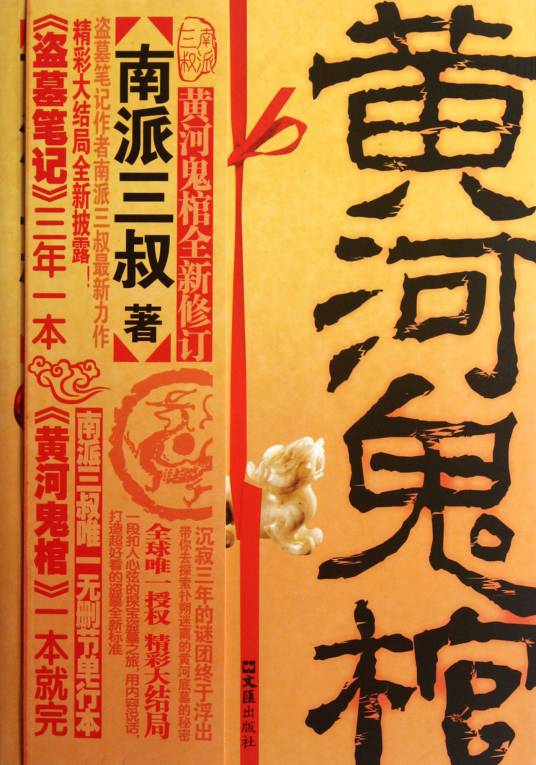 黄河鬼棺
黄河鬼棺全新修订
南派三叔
南派三叔 著
盗墓笔记作者南派三叔最新力作
精彩大结局全新披露！
《盗墓笔记》三年一本
《黄河鬼棺》一本就完
南派三叔唯一无删节单行本
沉寂三年的谜团终于浮出
带你去探索扑朔迷离的黄河底墓的秘密
全球唯一授权 精彩大结局
一段扣人心弦的探宝盗墓之旅，用内容说话，
打造超好看的盗墓全新标准
文匯出版社